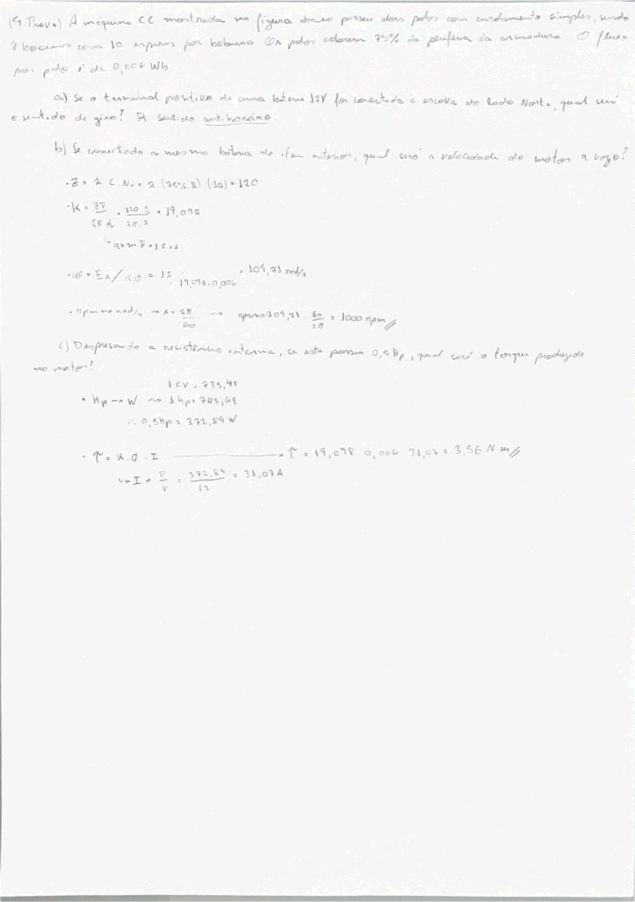 (9. Prova) A máquina CC mostrada na figura abaixo possui dois polos com enrolamento simples, sendo
8 bobinas com 10 espiras por bobina. Os polos cobrem 75% da periferia da armadura. O fluxo
por polo é de 0,006 Wb
a) Se o terminal positivo de uma bateria 12V for conectada à escova do lado Norte, qual será
o sentido de giro? R: sentido anti horário
b) Se conectado a mesma bateria do item anterior, qual será a velocidade do motor a vazio?
. Z = 2 C.N. = 2.(75%.8)(10) = 120
. K = ZP/2πa = 120.2/2π.2 = 19,098
. ω = EA/K.Ø = 12/19,098.0,006 = 104,71 rad/s
. rpm → rad/s → x = 2π/60 → rpm = 104,71 . 60/2π = 1000 rpm //
c) Desprezando a resistência interna, se este possui 0,5Hp, qual será o torque produzido
no motor?
1 CV = 735,49
. Hp → W → 1Hp = 745,69
∴ 0,5Hp = 372,84 W
. τ = K.Ø.I → τ = 19,098 0,006 31,07 = 3,56 N.m //
↳ I = P/V = 372,84/12 = 31,07A